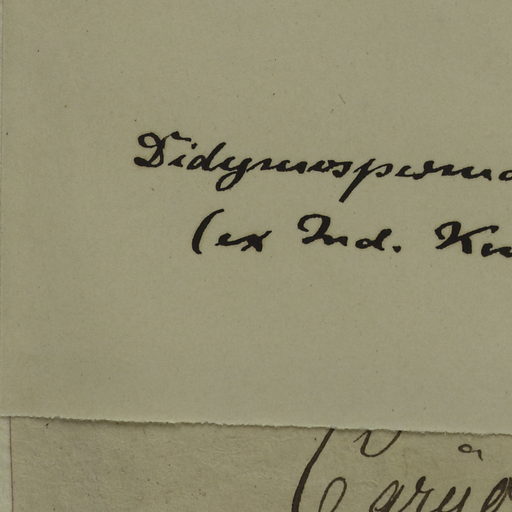 Didymosperma
(ex Ind. Kew
Caryo